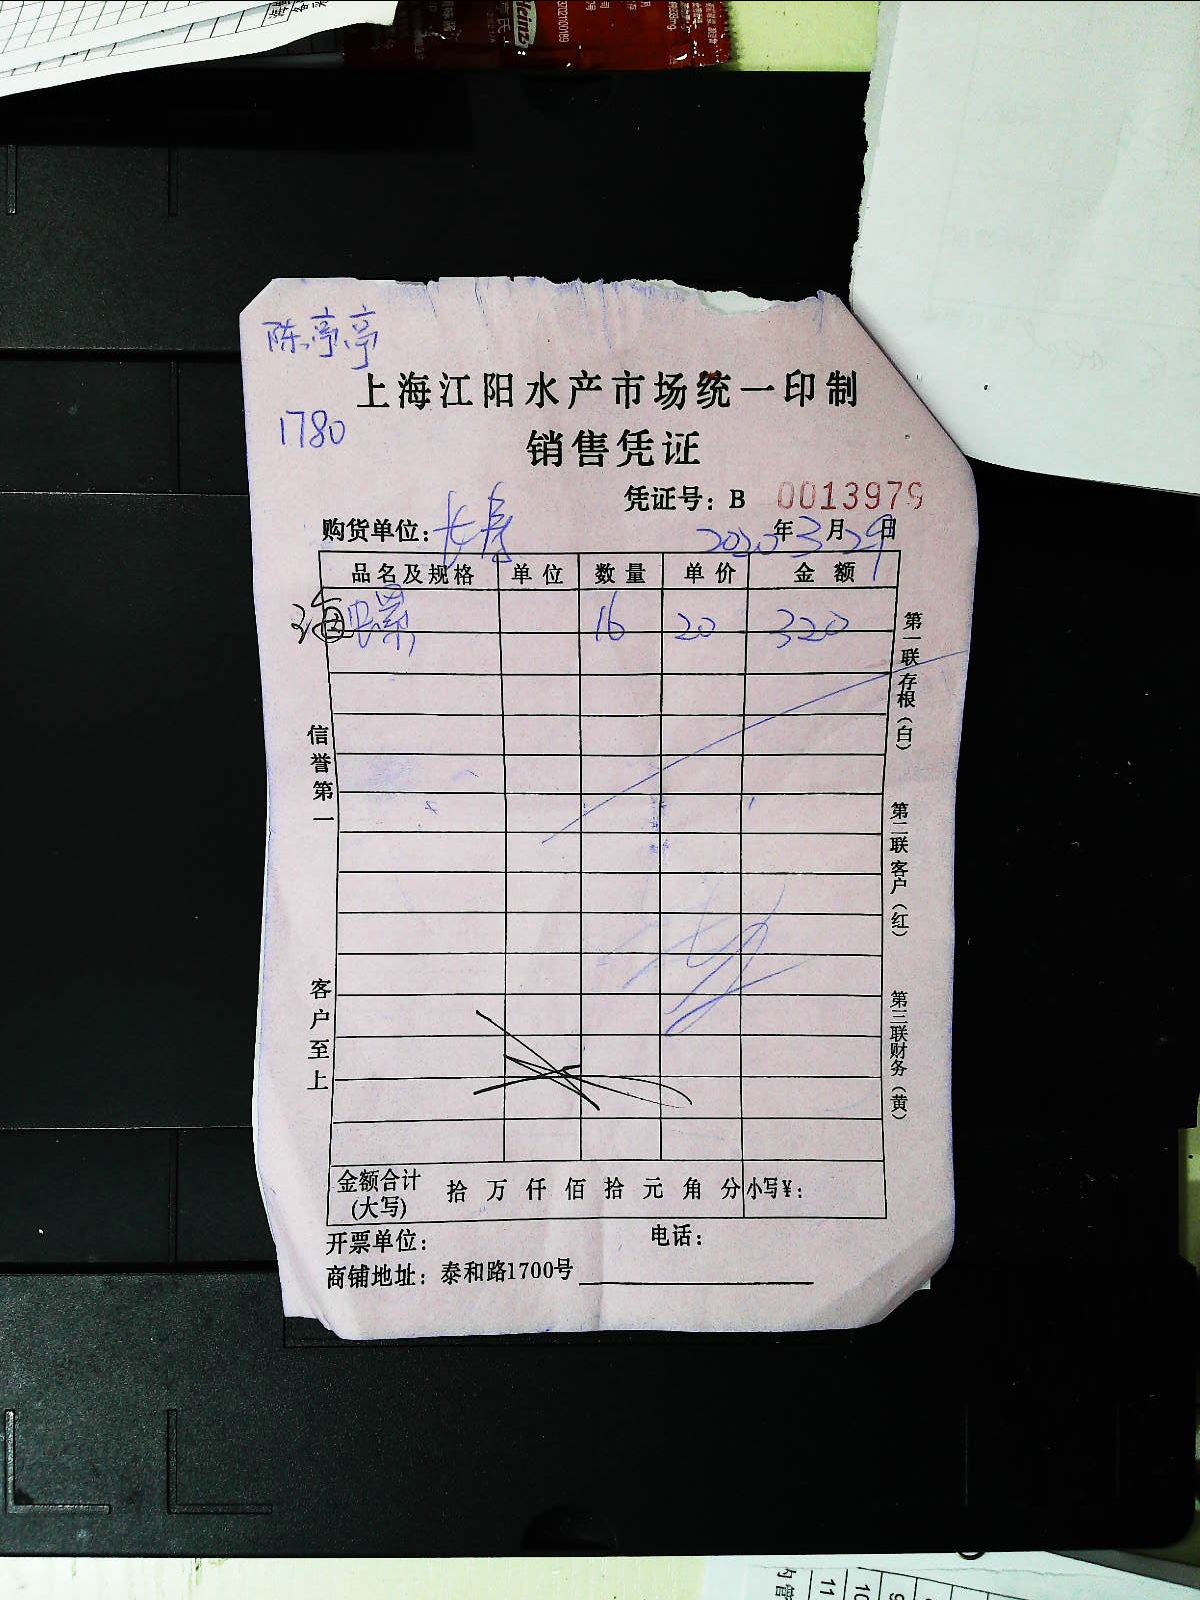 陈亭亭
上海江阳水产市场统一印制
1780
销售凭证
凭证号：B 0013979
购货单位：长寿 2020年3月29日
品名及规格 单位 数量 单价 金额
海螺 16 20 320
第一联存根（白）
信誉第一
第二联客户（红）
客户至上
第三联财务（黄）
金额合计(大写) 拾 万 仟 佰 拾 元 角 分 小写¥：
开票单位： 电话：
商铺地址：泰和路1700号